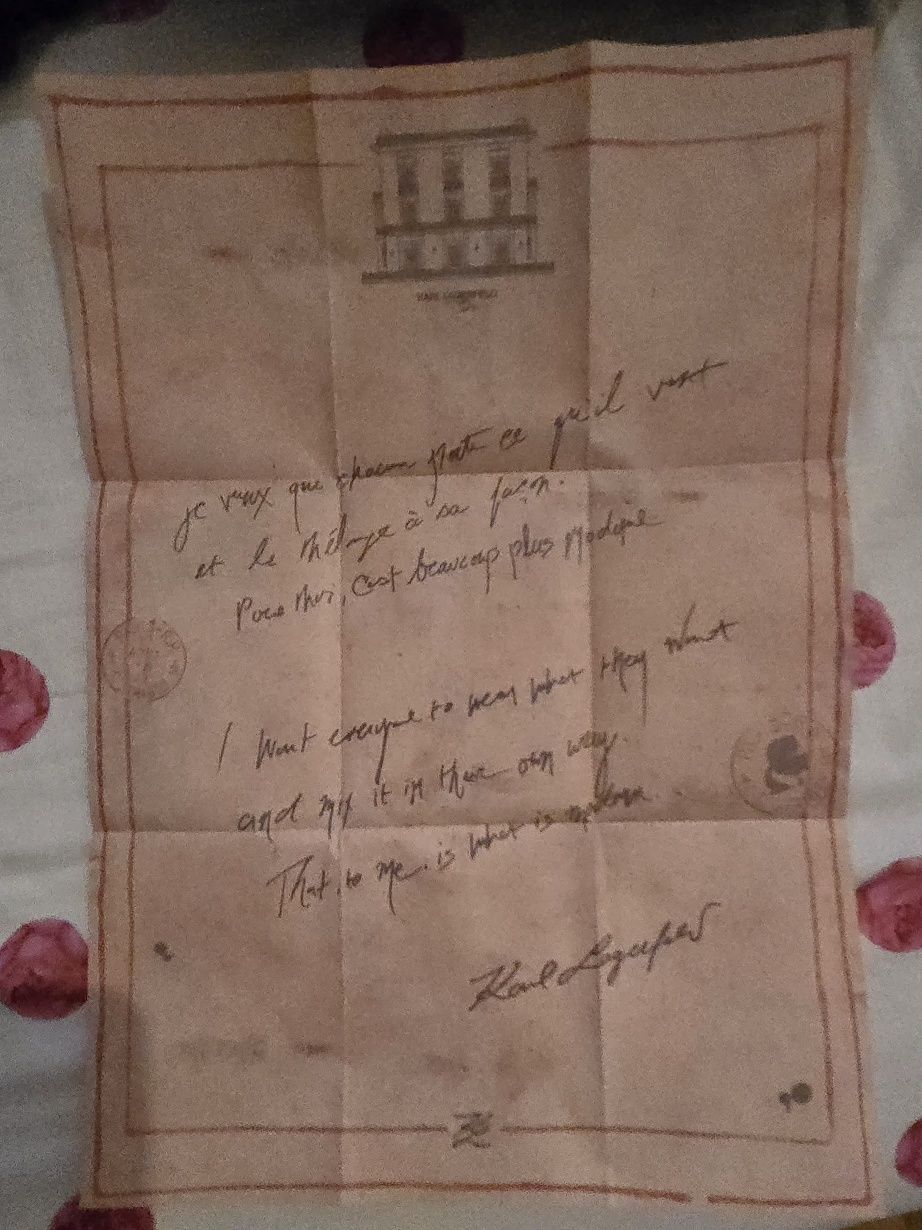 KARL LAGERFELD
je veux que chacun porte ce qu'il veut
et le mélange à sa façon.
Pour moi, c'est beaucoup plus moderne
I want everyone to wear what they want
and mix it in their own way.
That, to me, is what is modern.
Karl Lagerfeld